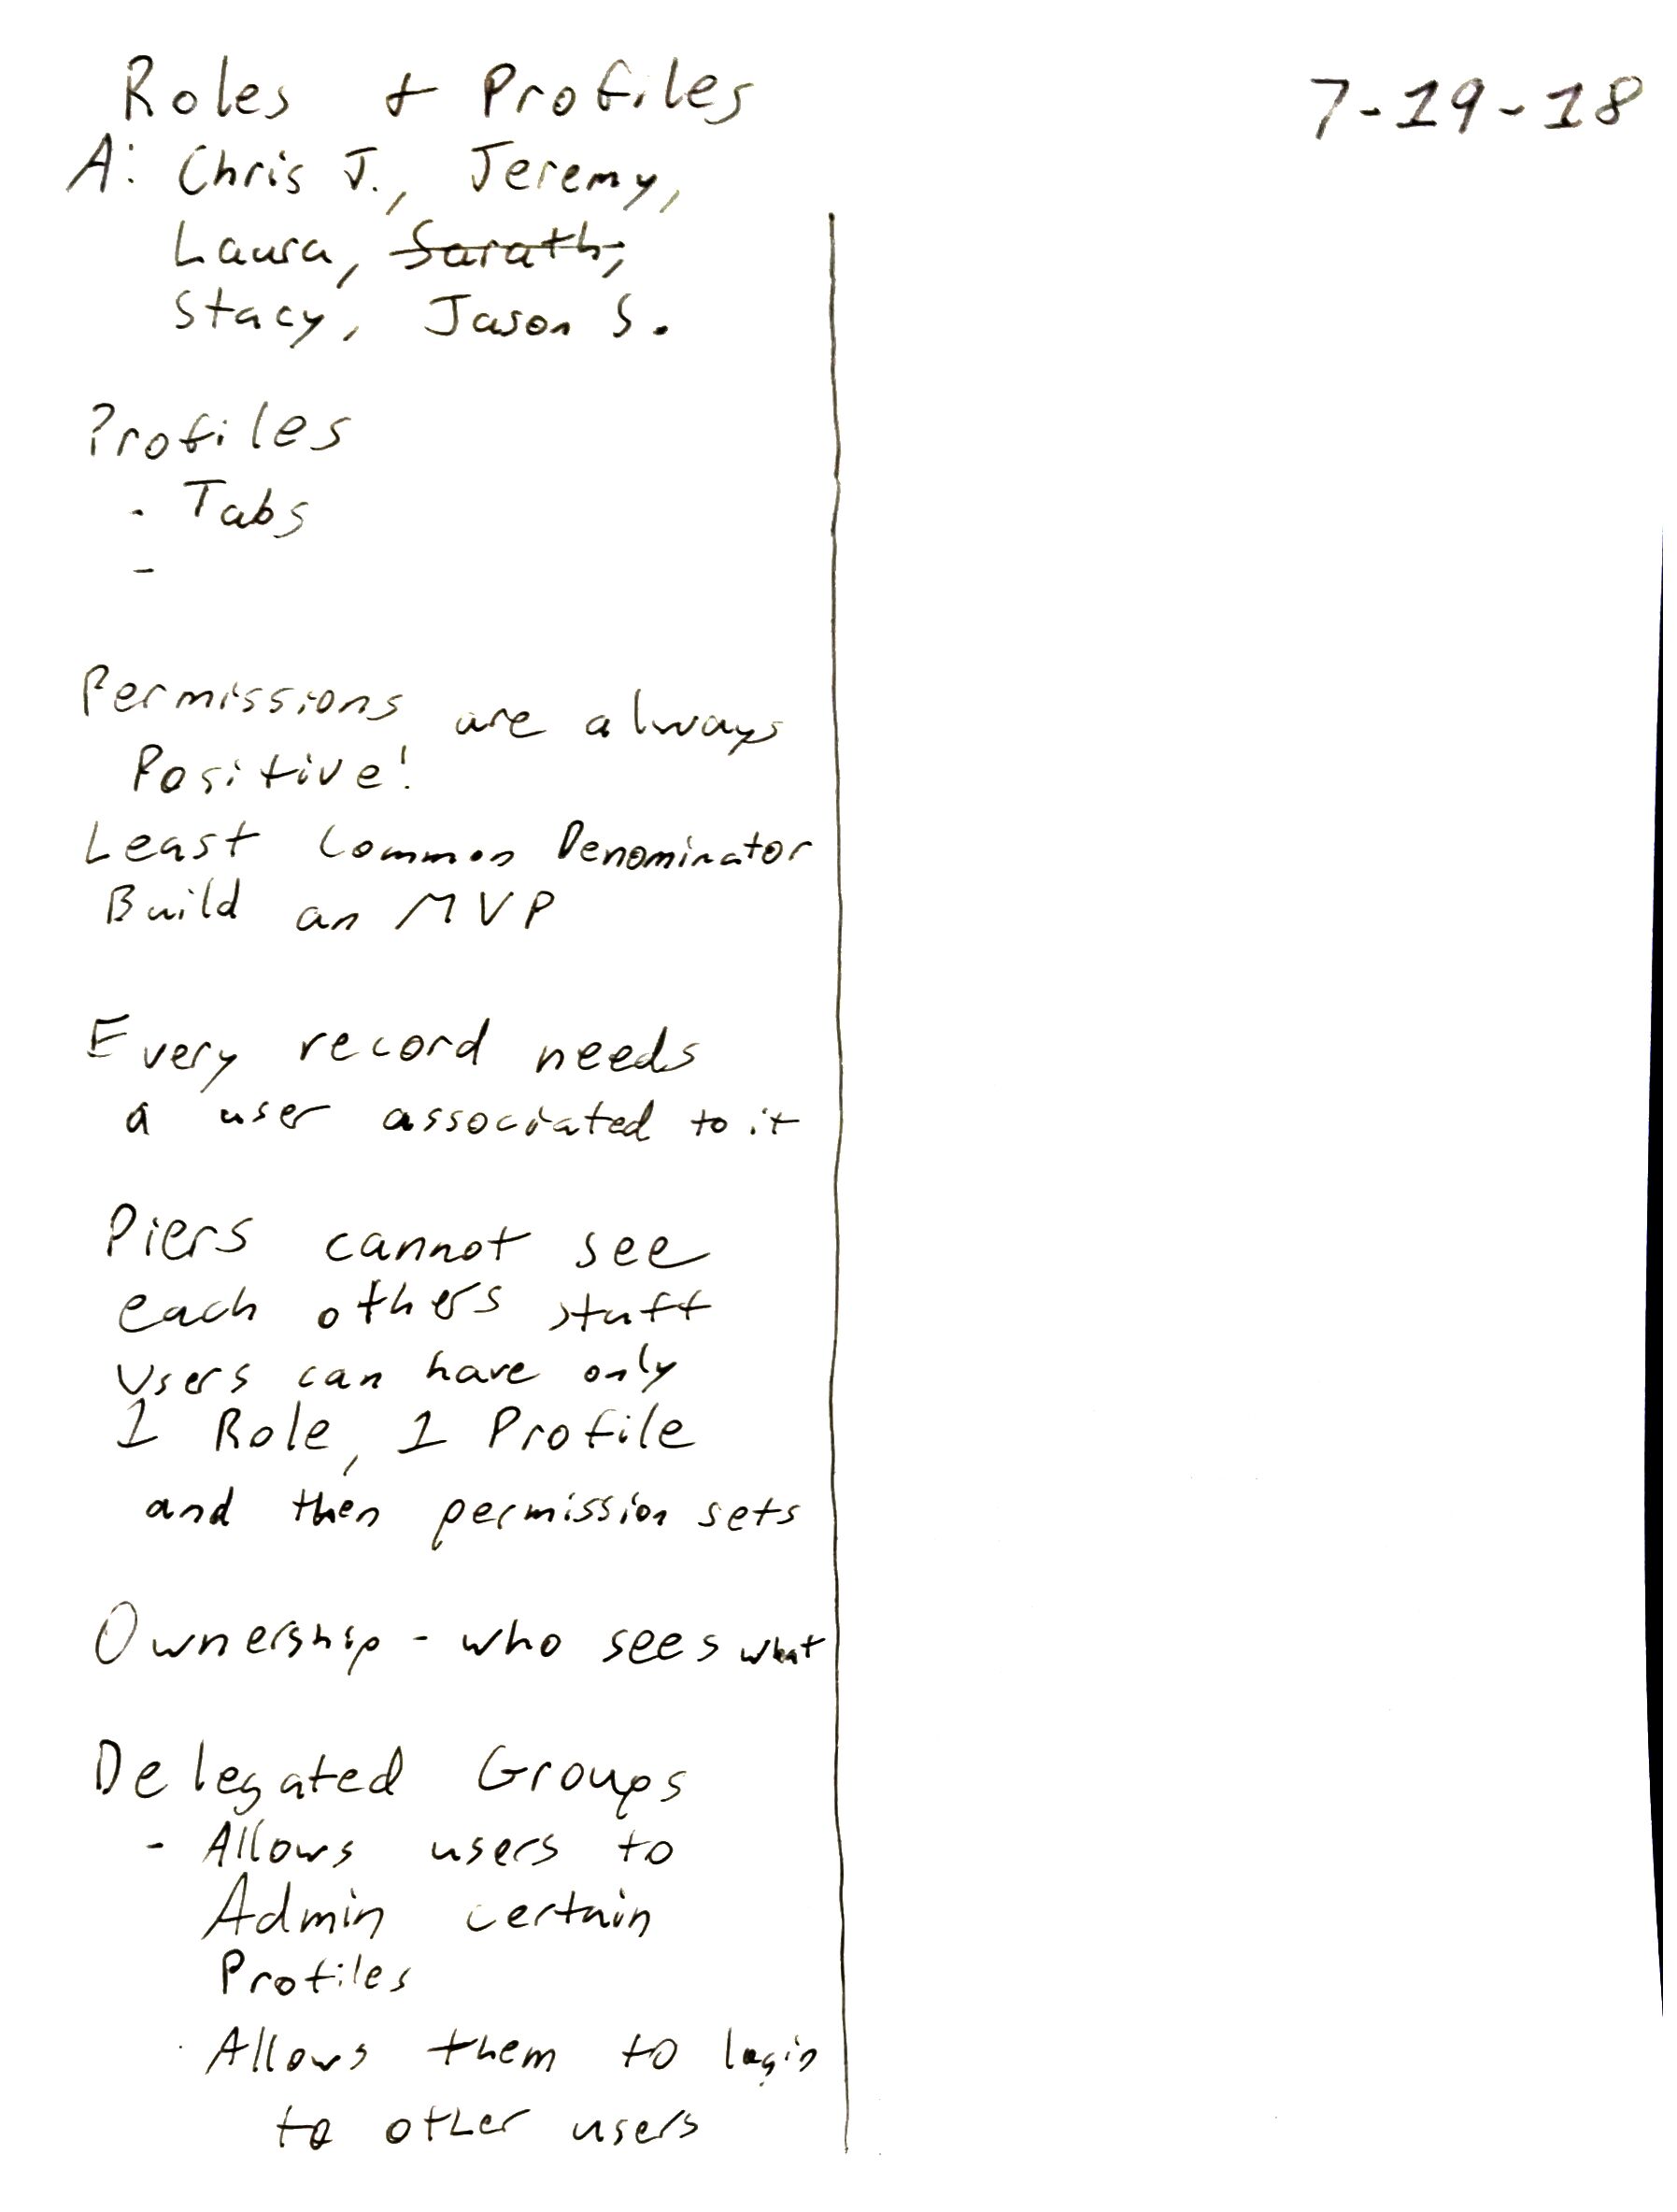 Roles + Profiles
7-19-18
A: Chris J., Jeremy,
Laura, Sarath,
Stacy, Jason S.
Profiles
- Tabs
-
Permissions are always
Positive!
Least Common Denominator
Build an MVP
Every record needs
a user associated to it
Piers cannot see
each others stuff
Users can have only
1 Role, 1 Profile
and then permission sets
Ownership - who sees what
Delegated Groups
- Allows users to
Admin certain
Profiles
- Allows them to login
to other users